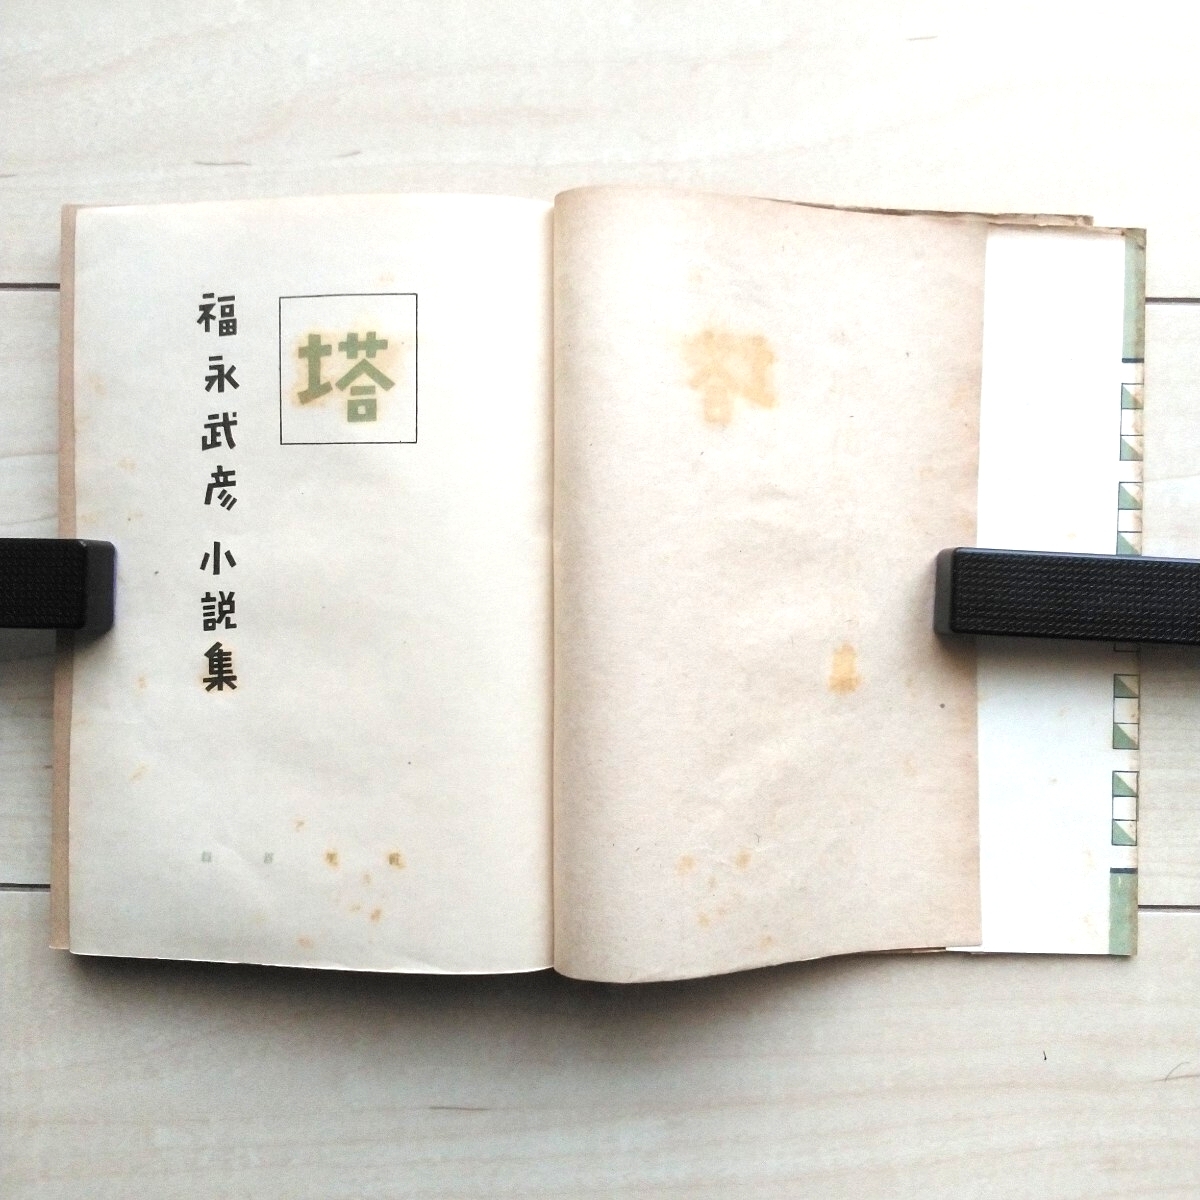 塔
福永武彦 小説集